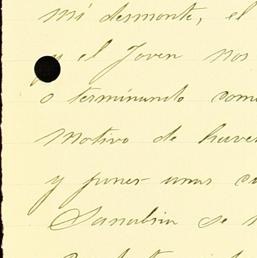 mi desmonte, el
y el Joven nos
o terminando come
Motivo de haver
y poner unas
Sanabria se